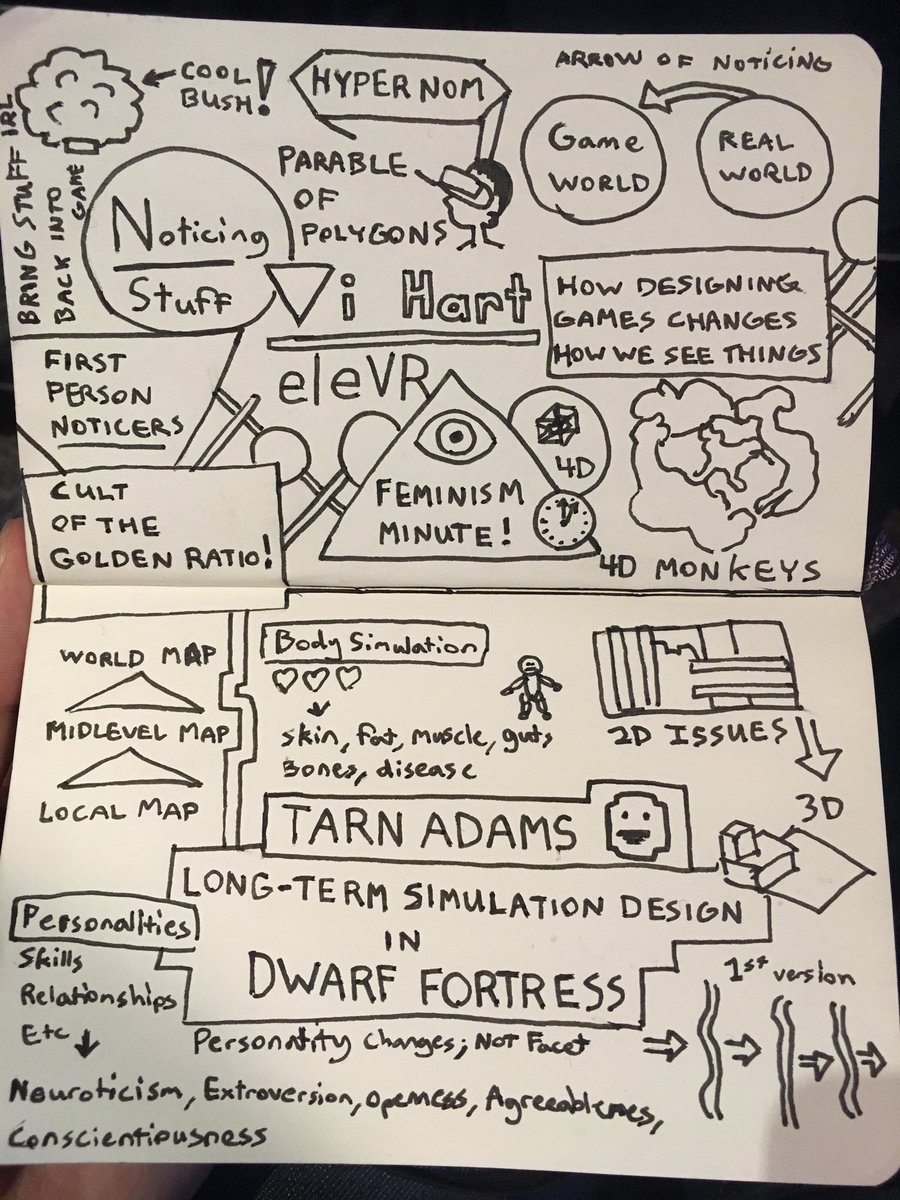 COOL
BUSH!
HYPERNOM
ARROW OF NOTICING
Game
WORLD
REAL
WORLD
BRING STUFF IRL
BACK INTO
GAME
PARABLE
OF
POLYGONS
Noticing
Stuff
Vi Hart
HOW DESIGNING
GAMES CHANGES
HOW WE SEE THINGS
FIRST
PERSON
NOTICERS
eleVR
4D
FEMINISM
MINUTE!
CULT
OF THE
GOLDEN RATIO!
4D MONKEYS
WORLD MAP
MIDLEVEL MAP
LOCAL MAP
Body Simulation
skin, fat, muscle, guts
Bones, disease
2D ISSUES
3D
TARN ADAMS
LONG-TERM SIMULATION DESIGN
IN
DWARF FORTRESS
Personalities
Skills
Relationships
Etc
1st version
Personality Changes; Not Facet
Neuroticism, Extroversion, Openness, Agreeableness,
Conscientiousness